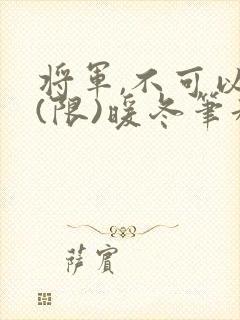 將軍,不可以
(限)暖冬筆
薩賓